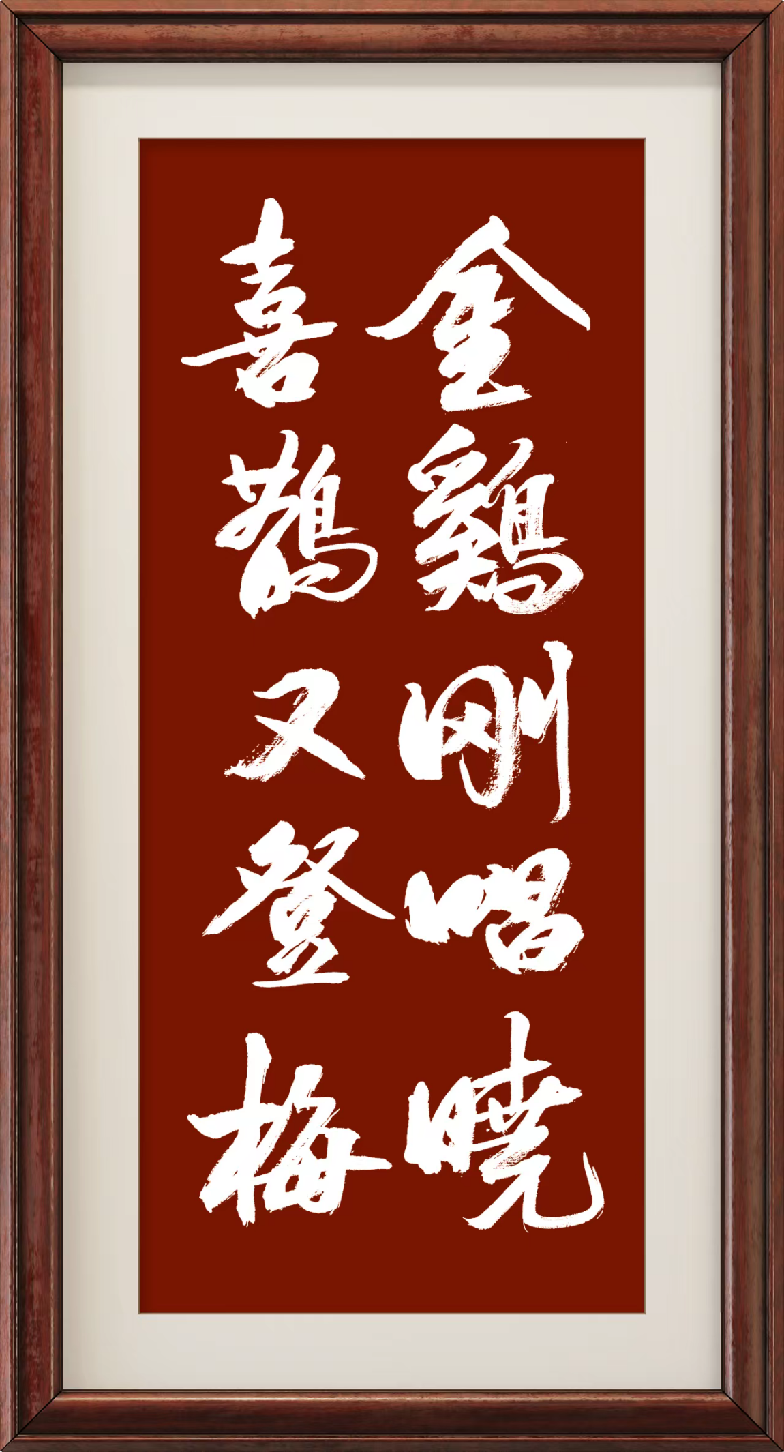 金鷄刚唱曉
喜鵲又登梅